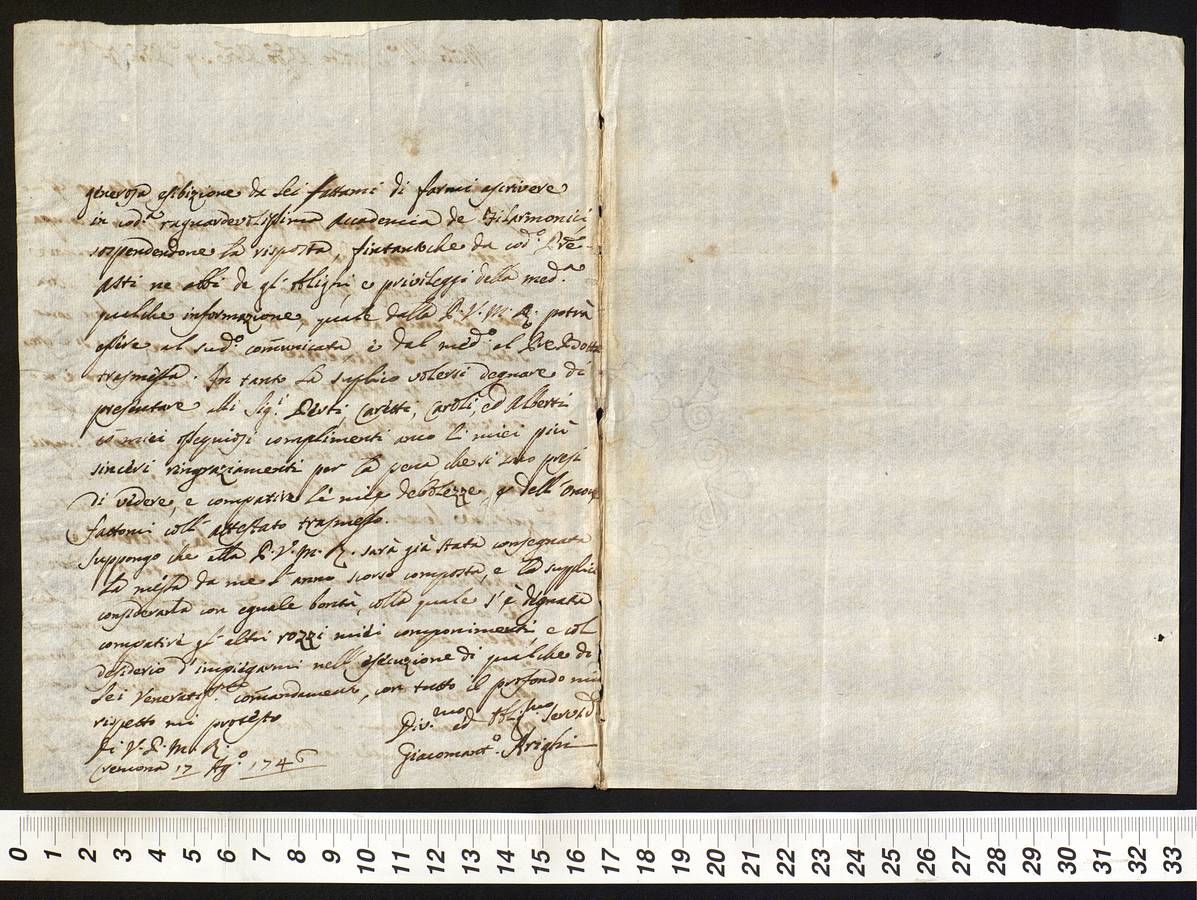 generosa esibizione da Lei fattami di farmi ascrivere
in cod.ª raguardevolissima Accademia de Filarmonici,
sospendendone la risposta, fintantoche da cod.º Pre
Asti ne abbi de gl'oblighi, e privileggi della med.ª
qualche informazione, quale dalla P. V. M. R. potrà
essere al sud.º comunicata e dal med.º al Pre
trasmessa. In tanto La suplico volersi degnare di
presentare alli Sig.ri Perti, Caretti, Caroli, ed Alberti
co miei ossequiosi complimenti anco li miei più
sinceri ringraziamenti per la pena che si sono presi
di vedere, e compatire le mie debolezze, e dell'
fattomi coll' attestato trasmesso.
Suppongo che alla P. V. M. R. sarà già stata consegnata
La messa da me l'anno scorso composta, e la supplico
considerarla con eguale bontà, colla quale s'è degnata
compatire gl'altri rozzi miei componimenti, e col
desiderio d'impiegarmi nell'esecuzione di qualche di
Lei Veneratis.mo comandamento, con tutto il profondo mio
rispetto mi protesto
Di V. P. M. R.
Cremona 17 Ag.º 1746
Div.mo ed Oblig.mo Serv.
Giacomant.º Arighi
0 1 2 3 4 5 6 7 8 9 10 11 12 13 14 15 16 17 18 19 20 21 22 23 24 25 26 27 28 29 30 31 32 33